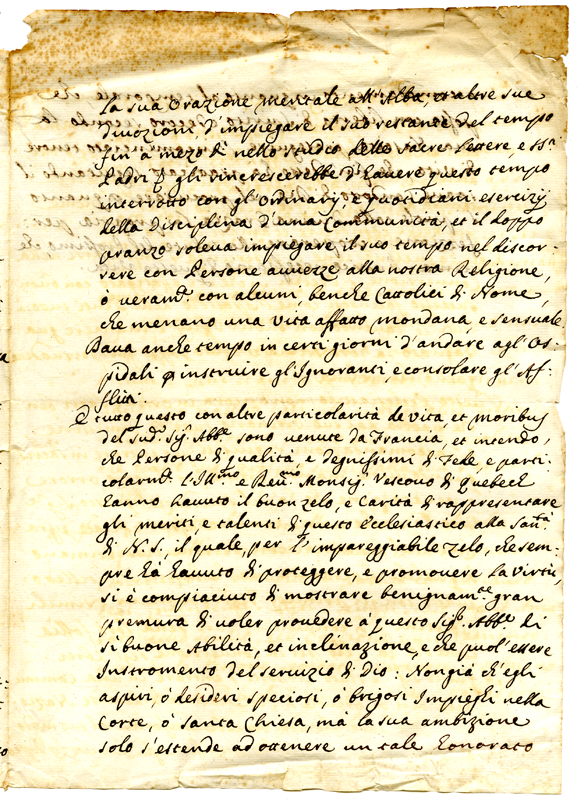 la sua Orazione mentale all'Alba, et altre sue
divozioni d'impiegare il suo restante del tempo
fin à mezo dì nello studio delle sacre lettere, e SS.ti
Padri, e gli rincrescerebbe d'havere questo tempo
interrotto con gl'Ordinarij, e quotidiani esercizij
della Disciplina d'una Communità, et il doppo
pranzo soleva impiegare il suo tempo nel discor-
rere con Persone avvezze alla nostra Religione,
ò veram.te con alcuni, benche Cattolici di Nome,
che menano una vita affatto mondana, e sensuale.
Dava anche tempo in certi giorni d'andare agl'Os-
pidali p instruire gl'Ignoranti, e consolare gl'Af-
flitti.
E tutto questo con altre particolarità de vita, et moribus
del sud.o Sig.r Abb.e sono venute da Francia, et intendo,
che Persone di qualità, e degnissimi di Fede, e parti-
colarm.te l'Ill.mo e Rev.mo Monsig.r Vescovo di Quebeck
hanno havuto il buon zelo, e Carità di rappresentare
gli meriti, e talenti di questo Ecclesiastico alla San.tà
di N. S., il quale, per l'impareggiabile zelo, che sem-
pre hà havuto di proteggere, e promovere la Virtù,
si è compiaciuto di mostrare benignam.te gran
premura di voler provedere à questo Sig.r Abb.e di
sì buone Abilità, et inclinazione, e che puol'essere
Instromento del servizio di Dio: Non già ch'egli
aspiri, ò desideri speciosi, ò brigosi Impieghi nella
Corte, ò Santa Chiesa, mà la sua ambizione
solo s'estende ad ottenere un tale honorato